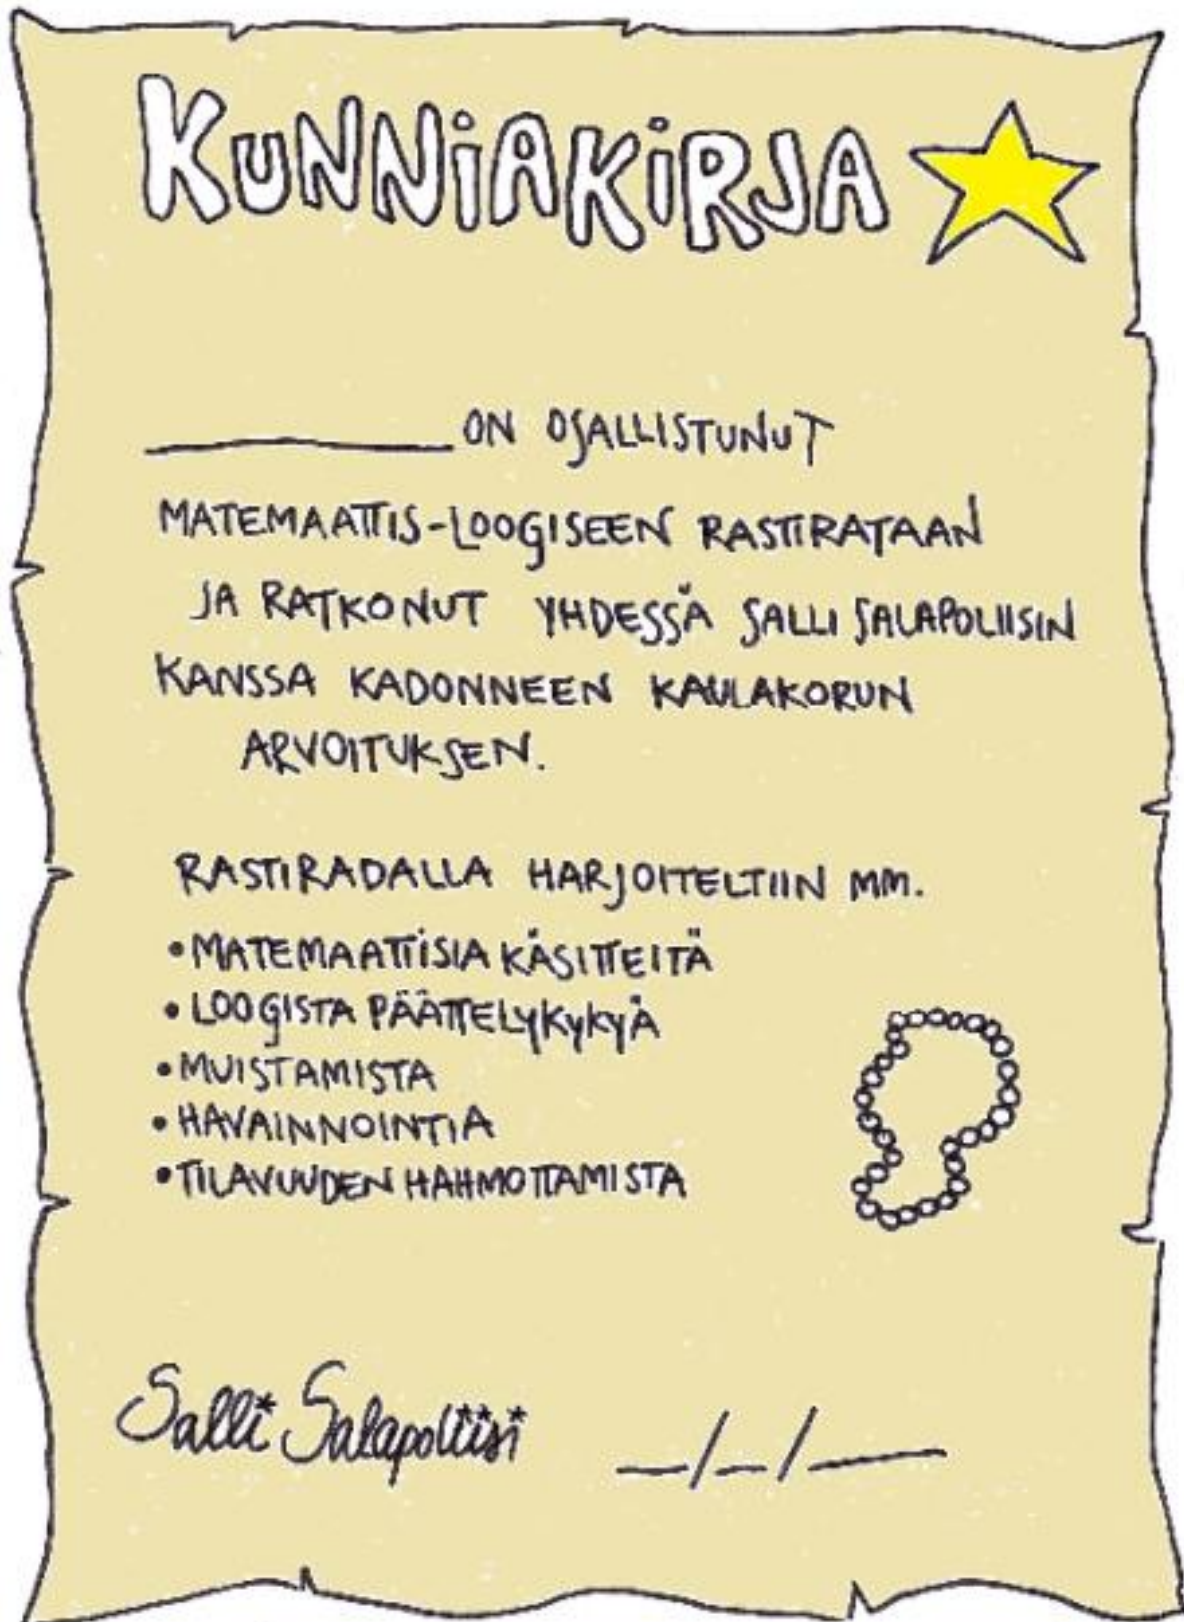 KUNNIAKIRJA
__________ ON OSALLISTUNUT
MATEMAATTIS-LOOGISEEN RASTIRATAAN
JA RATKONUT YHDESSÄ SALLI SALAPOLIISIN
KANSSA KADONNEEN KAULAKORUN
ARVOITUKSEN.
RASTIRADALLA HARJOITELTIIN MM.
•MATEMAATTISIA KÄSITTEITÄ
•LOOGISTA PÄÄTTELYKYKYÄ
•MUISTAMISTA
•HAVAINNOINTIA
•TILAVUUDEN HAHMOTTAMISTA
Salli Salapoliisi __/__/____